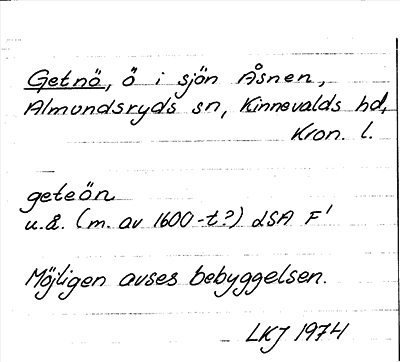 Getnö, ö i sjön Åsnen,
Almundsryds sn, Kinnevalds hd,
Kron. l.
geteön
u.å. (m. av 1600-t?) LSA F¹
Möjligen avses bebyggelsen.
LKJ 1974